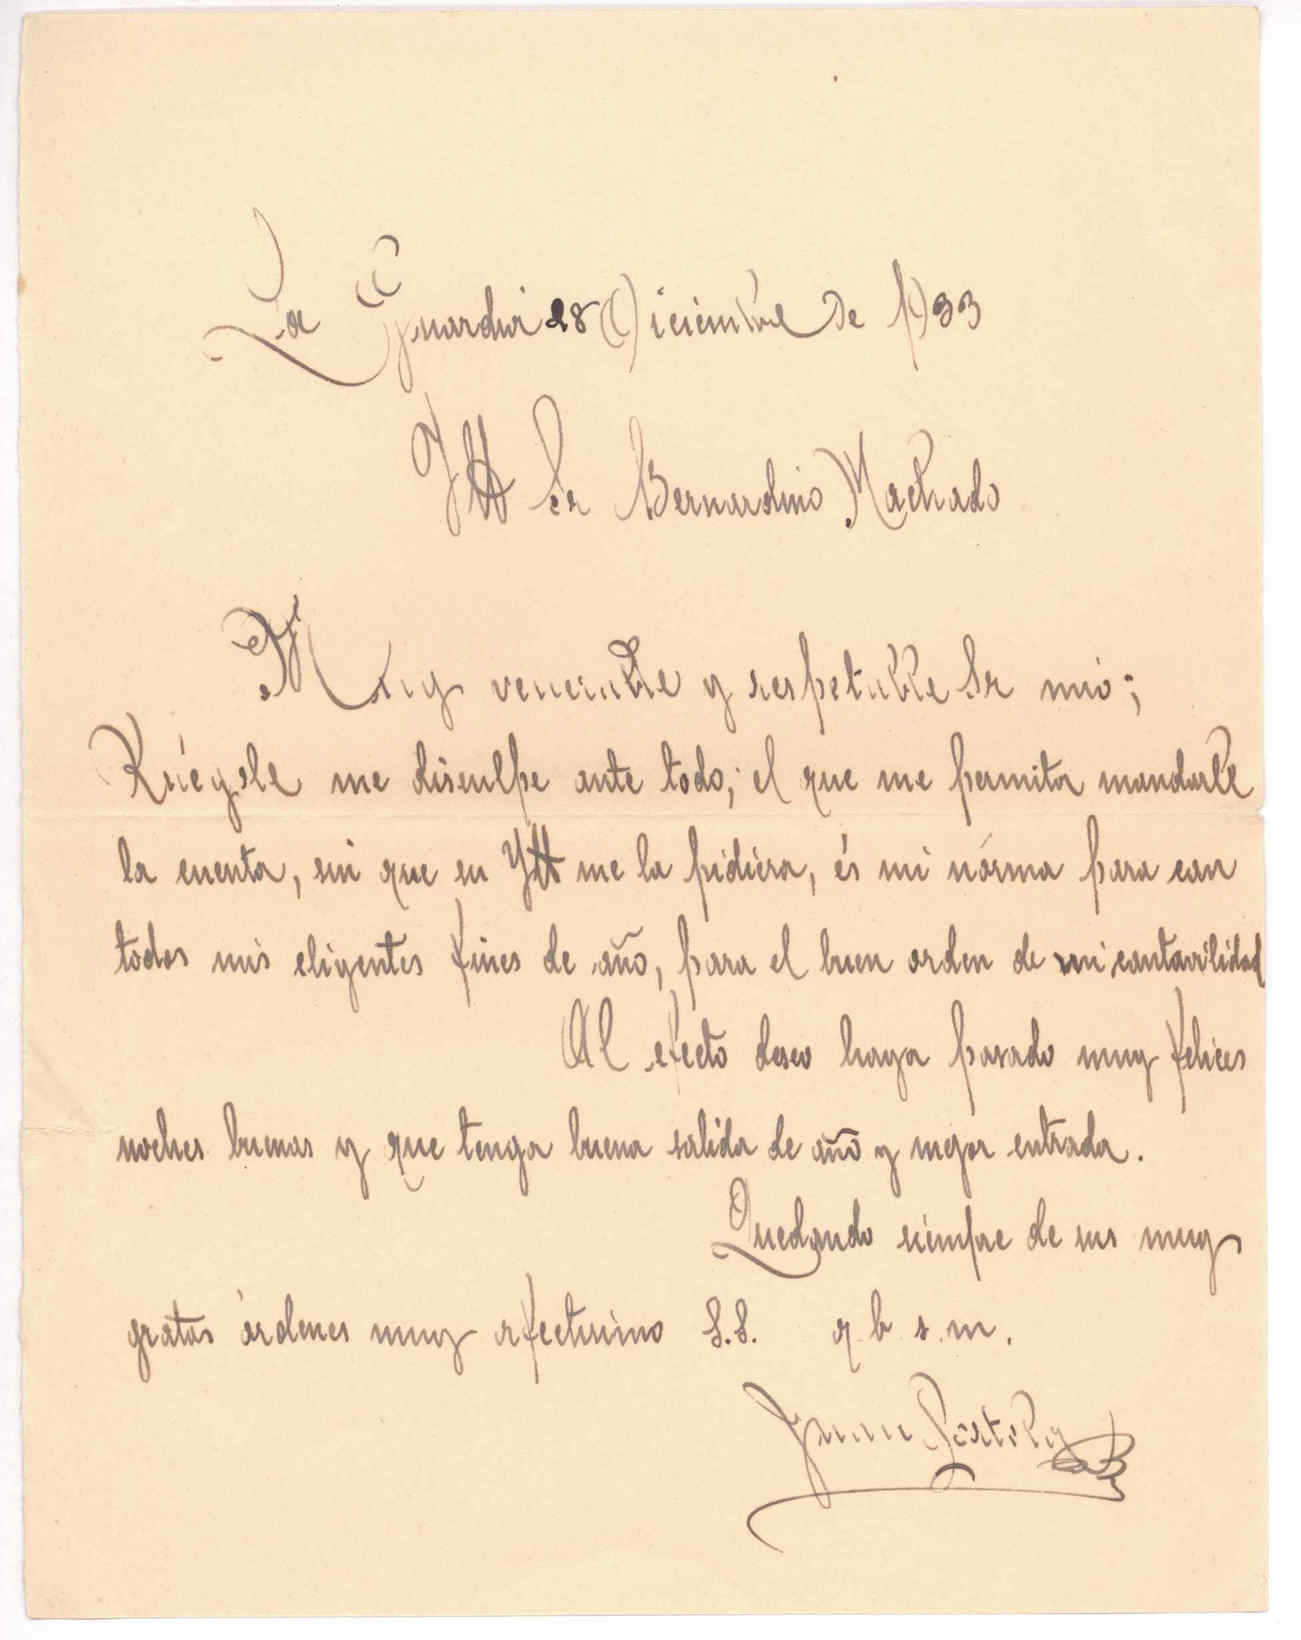 La Guardia 28 Diciembre de 1933
Ytt Sr Bernardino Machado
Muy venerable y respetable Sr mio;
Ruégole me disculpe ante todo; el que me permita mandarle
la cuenta, sin que su Ytt me la pidiera, és mi nórma para con
todos mis cligentes fines de año, para el buen orden de mi contavilidad
Al efecto deseo haya pasado muy felices
noches buenas y que tenga buena salida de año y mejor entrada.
Quedando siempre de sus muy
gratas órdenes muy afectisimo S.S. q. b. s. m.
Juan